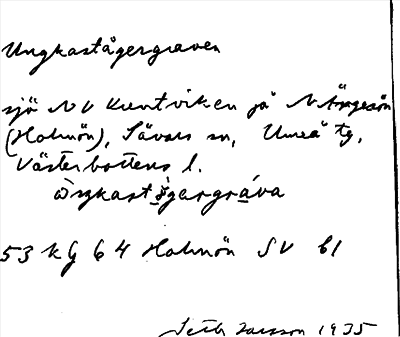 Ungkastågergraven
sjö NV Kuntviken på N Ängesön
(Holmön), Sävars sn, Umeå tg,
Västerbottens l.
53 kg 64 Holmön SV bl
Seth Jansson 1935